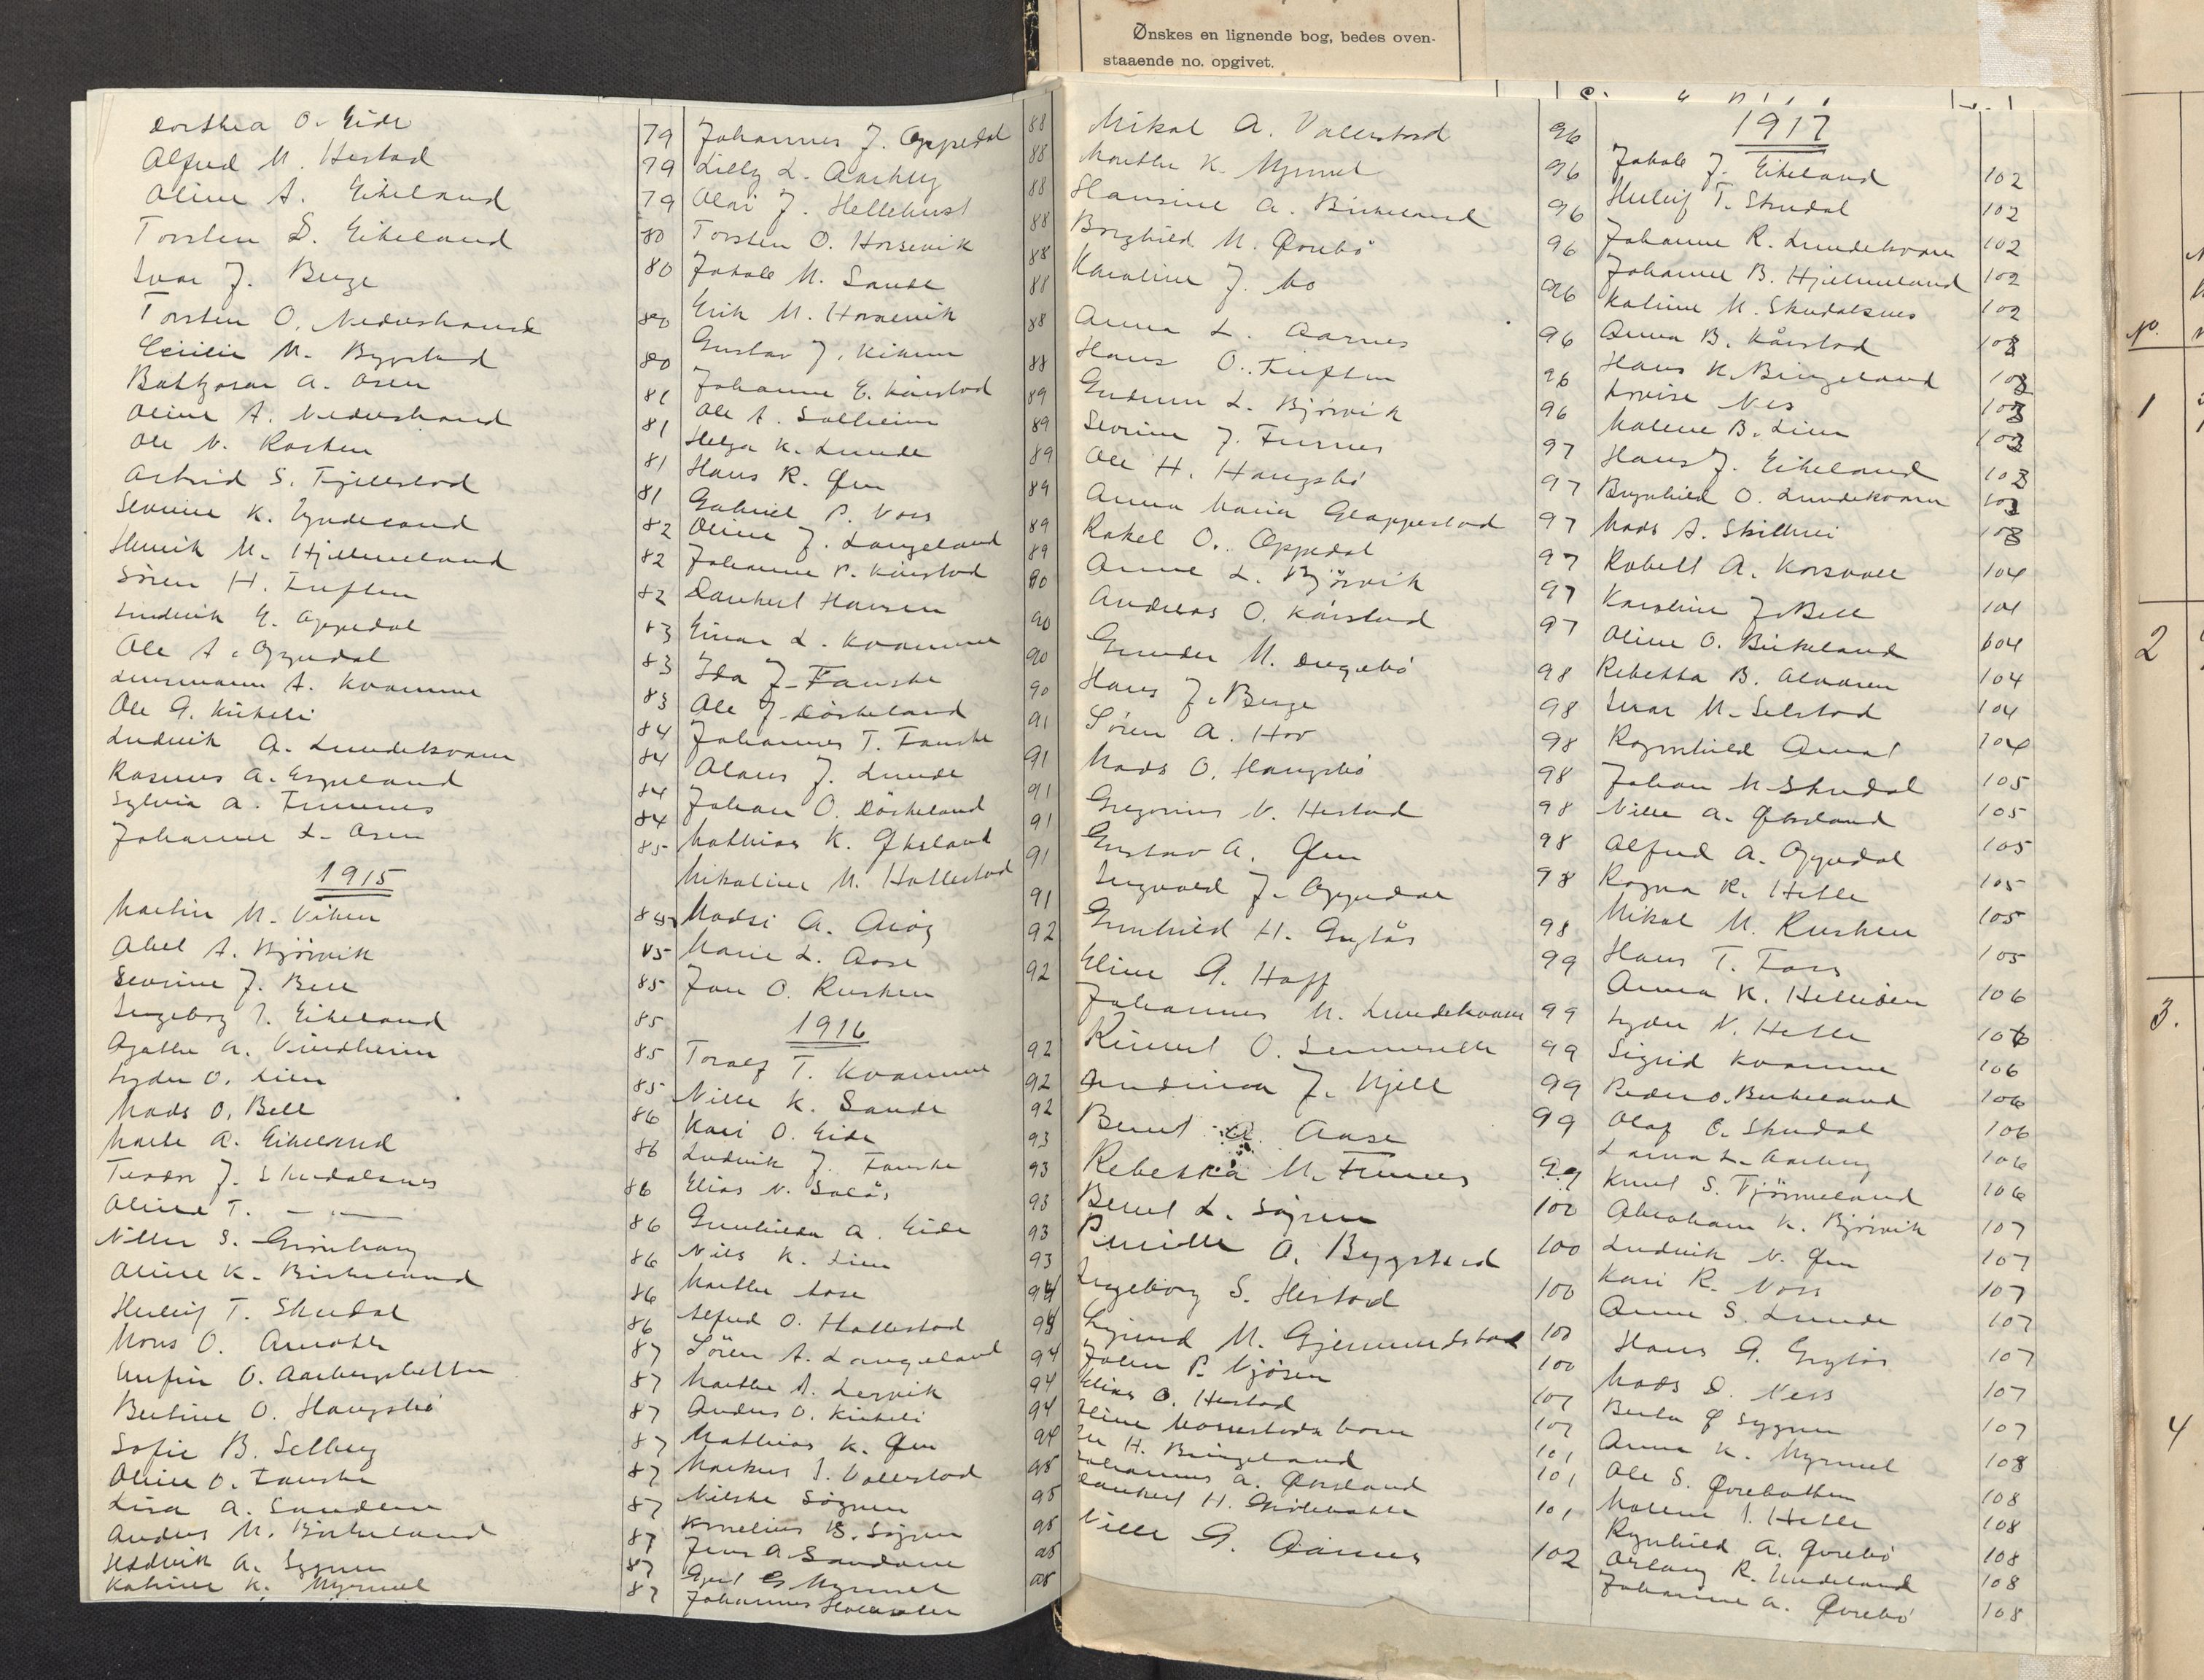 Ønskes en lignende bog, bedes oven-
staaende no. opgivet.
Dorthea O. Eide 79
Alfred M. Hestad 79
Oline A. Eikeland 79
Torsten S. Eikeland 80
Ivar J. Berge 80
Torsten O. Nedrestrand 80
Cecilie M. Bygstad 80
Baltzarar A. Osen 81
Oline A. Nedrestrand 81
Ole N. Rasten 81
Astrid S. Fjellestad 81
Severine K. Yndeland 82
Henrik M. Hjelmeland 82
Sören H. Tuften 82
Ludvik E. Oppedal 83
Ole A. Oppedal 83
Linsmann A. Kvamme 83
Ole G. Kirkeli 84
Ludvik A. Lundekvam 84
Rasmus A. Espeland 84
Sylvia A. Furnes 84
Johanne L. Osen 85
1915
Martin M. Viken 85
Abel A. Björvik 85
Severine J. Bell 85
Ingeborg I. Eikeland 85
Agathe A. Vindheim 85
Lyder O. Lien 85
Mads O. Bell 86
Marte A. Eikeland 86
Teodor J. Skudalsnes 86
Oline T. — " — 86
Nille S. Grönhaug 86
Oline K. Birkeland 86
Herleif T. Skudal 86
Mons O. Arnotte 87
Anfin O. Aarbergsbotten 87
Bertine O. Haugsbö 87
Sofie B. Selberg 87
Oline O. Fauske 87
Lisa A. Sandene 87
Anders M. Birkeland 87
Hedvik A. Sygnen 87
Katrine K. Myrmel 87
Johannes J. Oppedal 88
Lilly L. Aarberg 88
Olai J. Hellehurst 88
Torsten O. Horsevik 88
Jakob M. Sande 88
Erik M. Horsevik 88
Gustav J. Vikum 88
Johanne E. Kårstad 88
Ole A. Solheim 89
Helga K. Lunde 89
Hans R. Øen 89
Gabriel P. Voss 89
Oline J. Langeland 89
Johanne P. Kårstad 89
Dankert Hansen 90
Einar L. Kvamme 90
Ida J. Fauske 90
Ole J. Döskeland 90
Johannes T. Fauske 91
Olaus J. Lunde 91
Johan O. Döskeland 91
Mathias K. Øksland 91
Mikaline M. Hallestad 91
Madsi A. Arög 91
Marie L. Aase 92
Jon O. Rusken 92
1916
Toralf T. Kvamme 92
Nille K. Sande 92
Kari O. Eide 92
Ludvik J. Fauske 93
Elias N. Solås 93
Gunhilda A. Eide 93
Nils K. Lien 93
Marthe Aase 93
Alfred O. Hallestad 94
Sören A. Langeland 94
Marthe A. Lervik 94
Anders O. Kirkeli 94
Mathias K. Øen 94
Markus I. Vallestad 94
Nilske Sögnen 95
Kornelius B. Sögnen 95
Jens A. Sandene 95
Gert G. Myrmel 95
Johannes Hollevoter 95
Mikal A. Vallestad 96
Marthe K. Myrmel 96
Hansine A. Birkeland 96
Borghild M. Øvrebö 96
Karoline J. Mo 96
Anna L. Aarnes 96
Hans O. Tuften 96
Gudrun L. Björvik 96
Severine J. Furnes 97
Ole H. Haugsbö 97
Anna Maria Gloppestad 97
Rakel O. Oppedal 97
Anne L. Björvik 97
Andreas O. Kårstad 97
Gunder M. Dregebö 98
Hans J. Berge 98
Sören A. Hov 98
Mads O. Haugsbö 98
Gregorius N. Hestad 98
Gustav A. Øen 98
Ingvald J. Oppedal 98
Gunhild H. Grytås 98
Eline G. Hoff 99
Johannes M. Lundekvam 99
Rimert O. Sennesette 99
Andrina J. Kjell 99
Bernt A. Aase 99
Rebekka M. Furnes 99
Bernt L. Sögnen 100
Pernille A. Bygstad 100
Ingeborg S. Hestad 100
Sigurd M. Gjermundstad 100
John P. Njösen 100
Elias O. Hestad 101
Oline Marrestads barn 101
H. Bringeland 101
Johannes A. Øksland 101
Dankert H. 101
Nille G. Aarnes 102
1917
Jakob J. Eikeland 102
Herleif T. Skudal 102
Johanne R. Lundekvam 102
Johanne B. Hjelmeland 102
Katrine M. Skudalsnes 102
Anna B. Kårstad 103
Hans K. Bringeland 103
Lovise Nes 103
Malene B. Lien 103
Hans J. Eikeland 103
Brynhild O. Lundekvam 103
Mads A. Skilbrei 103
Rabell A. Korsvoll 104
Karoline J. Bell 104
Oline O. Birkeland 104
Rebekka B. Alvaren 104
Ivar M. Selstad 104
Ragnhild Amot 104
Johan M. Skudal 105
Nille A. Øksland 105
Alfred A. Oppedal 105
Ragna R. Helle 105
Mikal M. Rusken 105
Hans T. Foss 105
Anna K. Hellesen 106
Lyder N. Helle 106
Sigrid Kvamme 106
Peder O. Birkeland 106
Olaf O. Skudal 106
Laura L. Aarberg 106
Knut S. Tjönneland 106
Abraham K. Björvik 107
Ludvik N. Øen 107
Kari R. Voss 107
Anne S. Lunde 107
Hans G. Grytås 107
Mads D. Ness 107
Berta Ø Sygnen 107
Anna K. Myrmel 108
Ole S. Øvrebotten 108
Malene I. Helle 108
Rognhild A. Øvrebö 108
Aslaug R. Undeland 108
Johanne A. Øvrebö 108
No.
1
2
3.
4